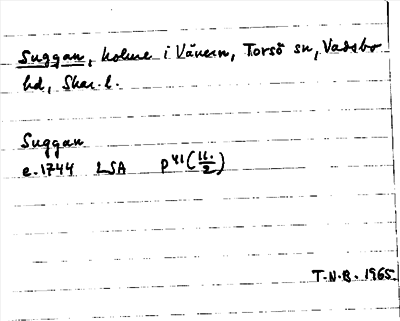 Suggan, holme i Vänern, Torsö sn, Vadsbo
hd, Skar. l.
Suggan
e. 1744 LSA P41 (11:/2)
T.N.B. 1965.